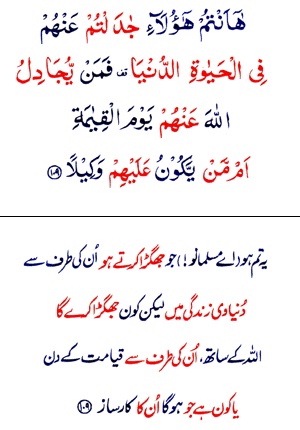 هٰٓاَنْتُمْ هٰٓؤُلَآءِ جٰدَلْتُمْ عَنْهُمْ
فِی الْحَیٰوةِ الدُّنْیَا قف فَمَنْ یُّجَادِلُ
اللّٰهَ عَنْهُمْ یَوْمَ الْقِیٰمَةِ
اَمْ مَّنْ یَّكُوْنُ عَلَیْهِمْ وَكِیْلًا ﴿۱۰۹﴾
یہ تم ہو (اے مسلمانو!) جو جھگڑا کرتے ہو اُن کی طرف سے
دُنیاوی زندگی میں لیکن کون جھگڑا کرے گا
اللہ کے ساتھ، اُن کی طرف سے قیامت کے دن
یا کون ہے جو ہوگا اُن کا کارساز ﴿۱۰۹﴾